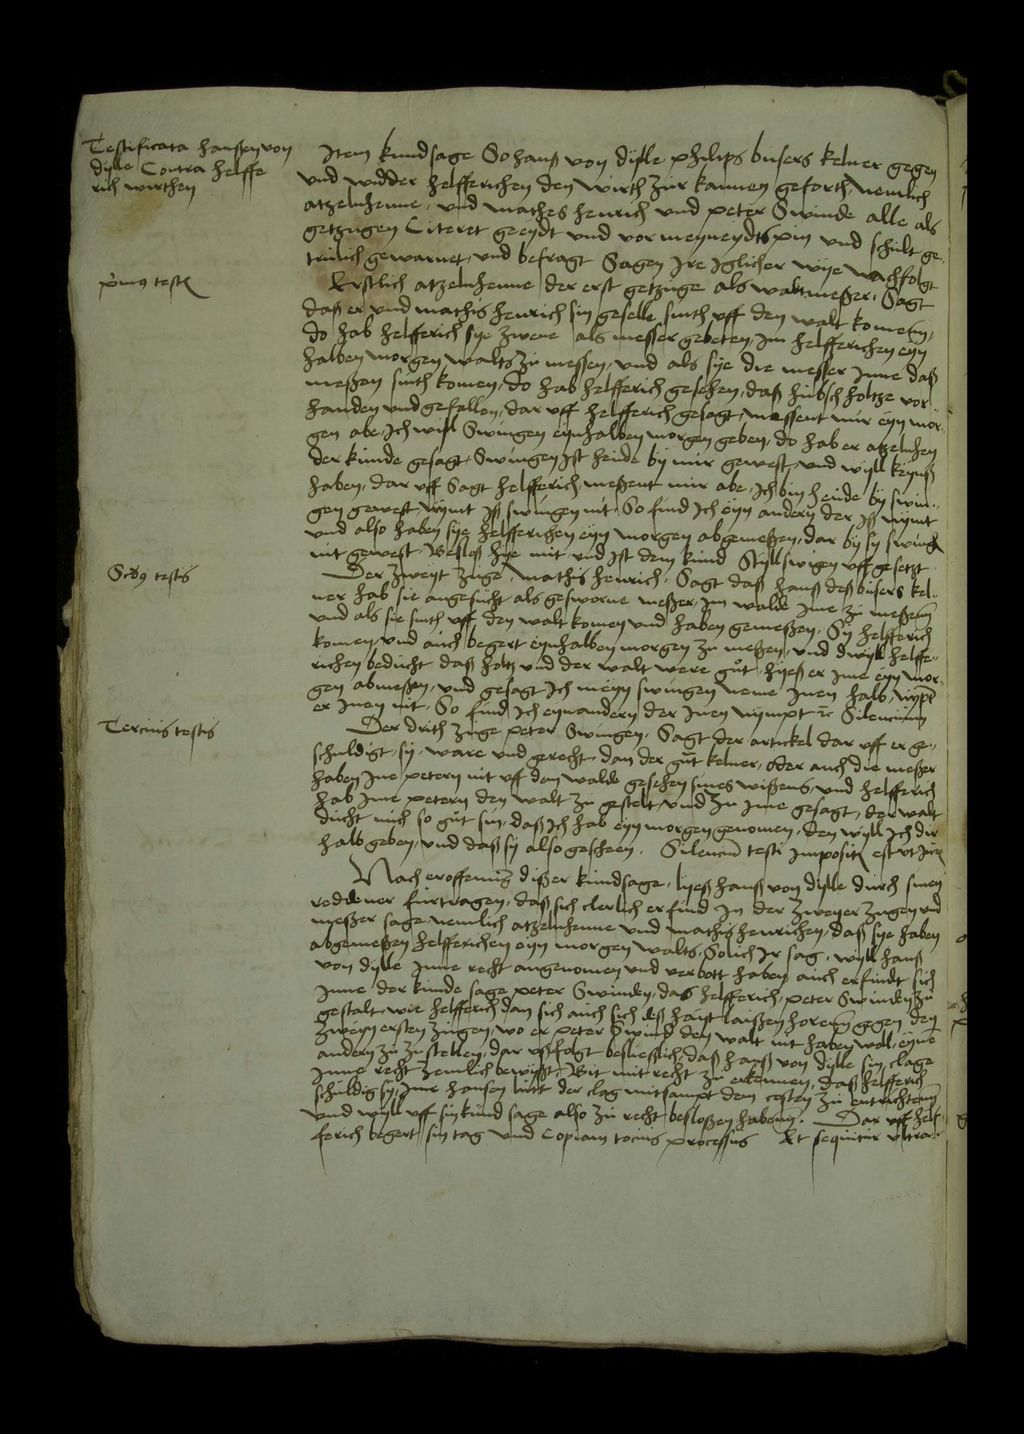 Testificata hanßen von
dylle Contra helffe
rich wirthen
Item kundsage So hanß von dylle philips busers kelner gegen
und widder helfferichen den wirth zur kannen gefort, nemlich
atzelnhenne, und mathes henrich und peter Swinde alle als
getzugen Citeret geeydt und vor meyneydts pin und schult ge-
trulich gewarnet, und befragt Sagen Ire Iglicher wije nachfolgt
primus testis
Erstlich atzelnhenne der erst getzuge als waltmeßer, Sagt
daß er und mathis henrich sin geselle sinth uff den walt komen,
do hab helfferich sye zwene als messer gebeten, Im helfferichen eyn
halben morgen walts zu messen, und als sye die messer Inne daß
meßen sinth komen, do hab helfferich gesehen, daß hubsch holtze vor
handen und gefallen, dar uff helfferich gesagt, messent mir eyn mor-
gen abe, Ich will Swingen eynhalben morgen geben, do hab er atzelnhen
der kunde gesagt, Swingen Ist heude by mir gewest, und wyll keynß
haben, dar uff Sagt helfferich, meßent mir abe, Ich bin heude by swin-
gen gewest, nympt Iß swingen nit, So find Ich eyn andern der Iß nympt
und also haben sye helfferichen eyn morgen abgemeßen, dar by sy swingen
nit gewest, Besloß hye mit, und Ist dem kund Styllswigen uff gesetzt
Secundus testis
Der zweyt zuge, mathis henrich, Sagt daß hanß deß busers kel-
ner hab sie angesucht als gesworne meßer, Im walde Ime zu meßen
und als sie sinth uff den walt komen und haben gemeßen, Sy helfferich
komen, und auch begert eynhalben morgen zu meßen, und dwyll helffe-
richen beducht daß holtz und der walt were gut, hyeß er Ime eyn mor-
gen abmeßen, und gesagt Ich meyn swingen neme Inen halb, nympt
er Inen nit, So find Ich eynandern der Inen nympt etc Silencium
Tercius testis
Der drith zuge peter Swingen, Sagt der artickel dar uff er ge-
schuldigt, sy, ware und gerecht, dan der gut kelner, oder auch die meßer
haben Ine petern nit uff dem walde gesehen sines wißens, und helfferich
hab Ime petern den walt zu gestelt und zu Ime gesagt, der walt
ducht mich so gut sin, daß Ich hab eyn morgen genomen, den wyll Ich dir
halb geben, und daß sy also gescheen. Silencium testi Impositum est ut Juris
Nach eroffenung dißer kundsage, lyeß hanß von dylle durch sinen
reddener furtragen, daß sich clerlich erfind In der zweyer zugen und
meßer sage nemlich atzelnhenne und mathis henrichen, daß sye haben
abgemeßen helfferichen eyn morgen walts, Solich Ir sag, wyll hanß
von dylle Inne recht angenomen und verbott haben, auch erfindt sich
Inne der kunde sage peter Swinden, das helfferich, peter Swinden zu
gestalt, wie helfferich dan sich auch sich deß hayt laißen horen gegen den
zweyn ersten zugen, wo er peter Swind den walt nit haben wol, eyne
andern zu zu stellen, dar ußfolgt besließlich, daß hanß von dylle sin clage
Inne recht zemlich bewyßt, Bit mit recht zu erkennen, daß helfferich
schuldig sy, Ime hansen lutt der clag mitsampt dem costen zu entrichten
und wyll uff sin kund sage also zu recht besloßen haben. Dar uff helf
ferich begert sin tag und Copiam tocius processus Et sequitur ultra